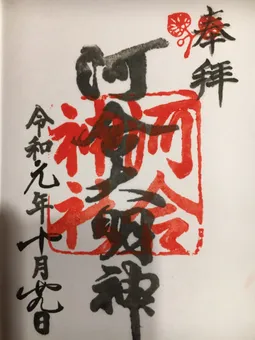 奉拝
河合大明神
河合
神社
令和元年十月日